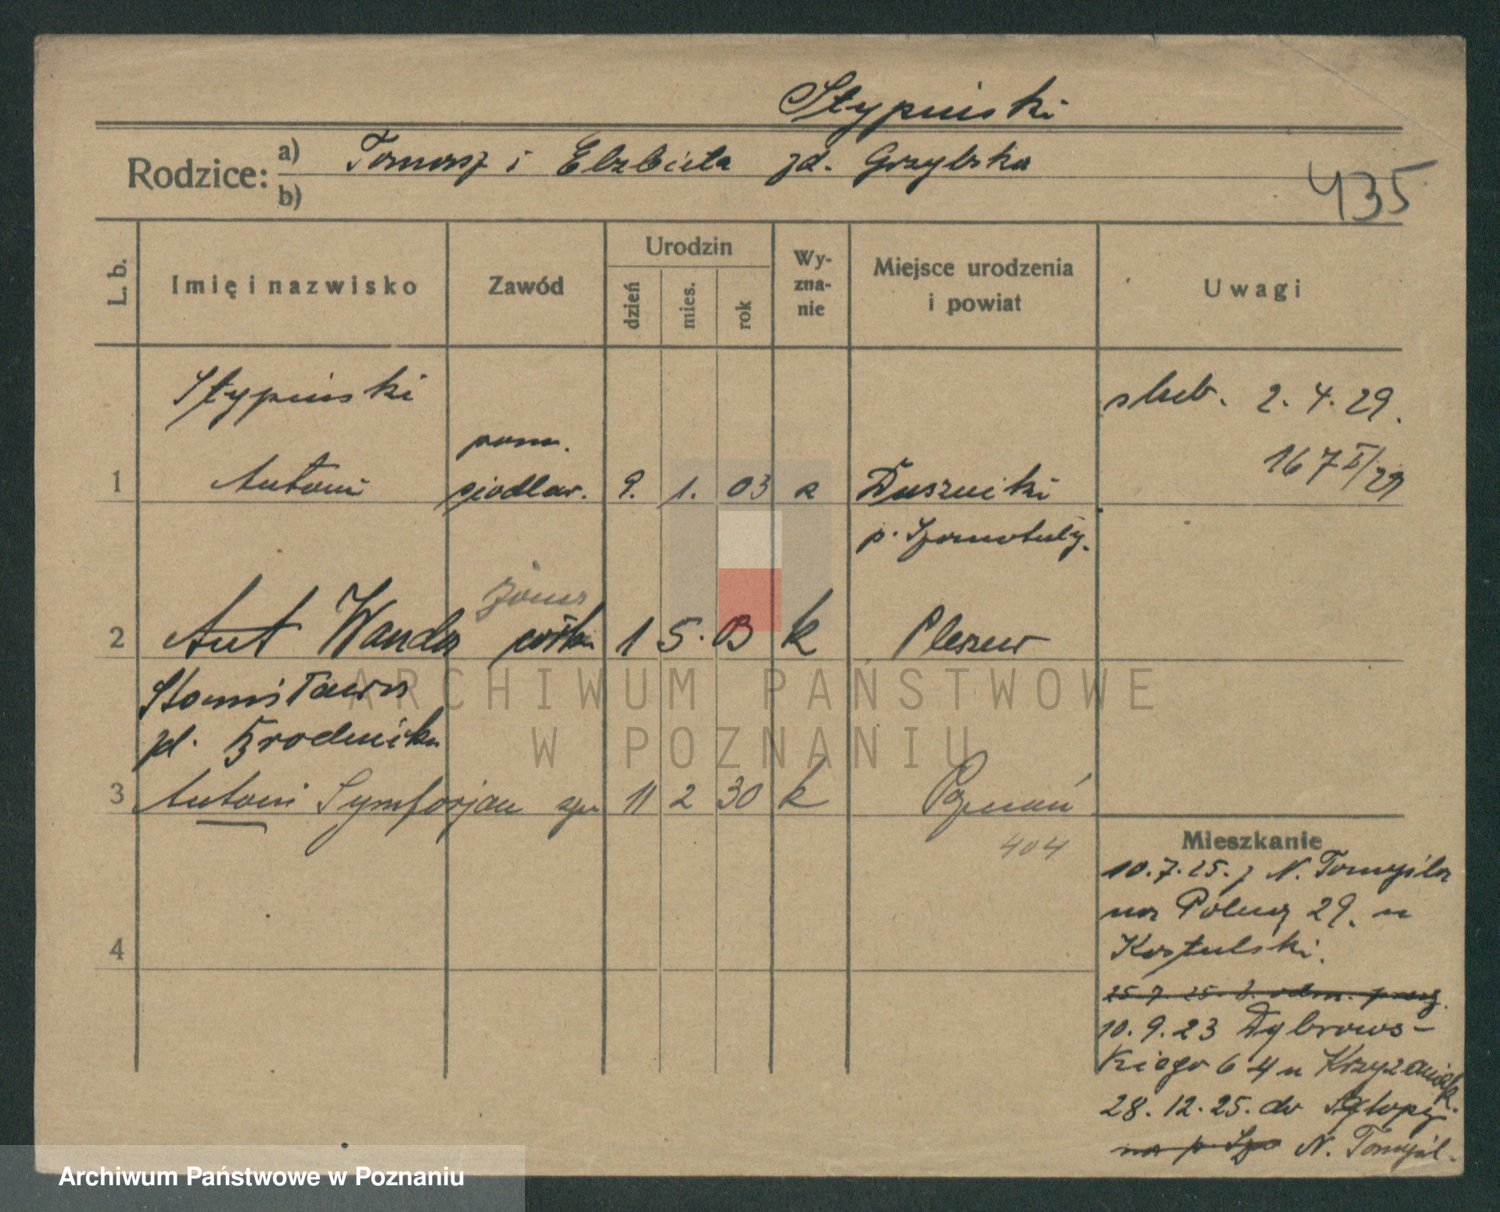 Stypiński
Rodzice: a) Tomasz i Elżbieta zd. Grzybska
b)
435
L. b. Imię i nazwisko Zawód Urodzin dzień mies. rok Wy-zna-nie Miejsce urodzenia i powiat Uwagi
Stypiński
ślub. 2. 4. 29.
pom.
167 I/29
1 Antoni siodlar. 9. 1. 03 Duszniki
p. Szamotuły.
żona
2 Aut Wanda 1 5. 03 k Pleszew
Stanisława
zd. Brodnicka
3 Antoni Symforjan syn 11 2 30 k Poznań
404
4
Mieszkanie
10.7.25. z N. Tomyśla
na Polną 29. u
Kostulski.
25.7.25. b. odm. pracy
10.9.23 Dąbrows-
kiego 64 u Krzyżaniak.
28.12.25. do Sątopy
na p. N. Tomyśl.
ARCHIWUM PAŃSTWOWE
W POZNANIU
Archiwum Państwowe w Poznaniu